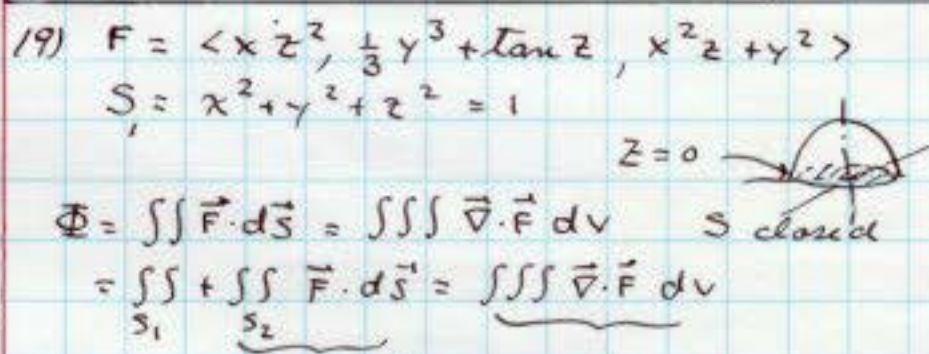 19) F = < x z², ⅓ y³ + tan z , x² z + y² >
S₁ = x² + y² + z² = 1
z = 0
Φ = ∬ F⃗ · dS⃗ = ∭ ∇⃗ · F⃗ dv S closed
= ∬ + ∬ F⃗ · ds⃗ = ∭ ∇⃗ · F⃗ dv
S₁ S₂